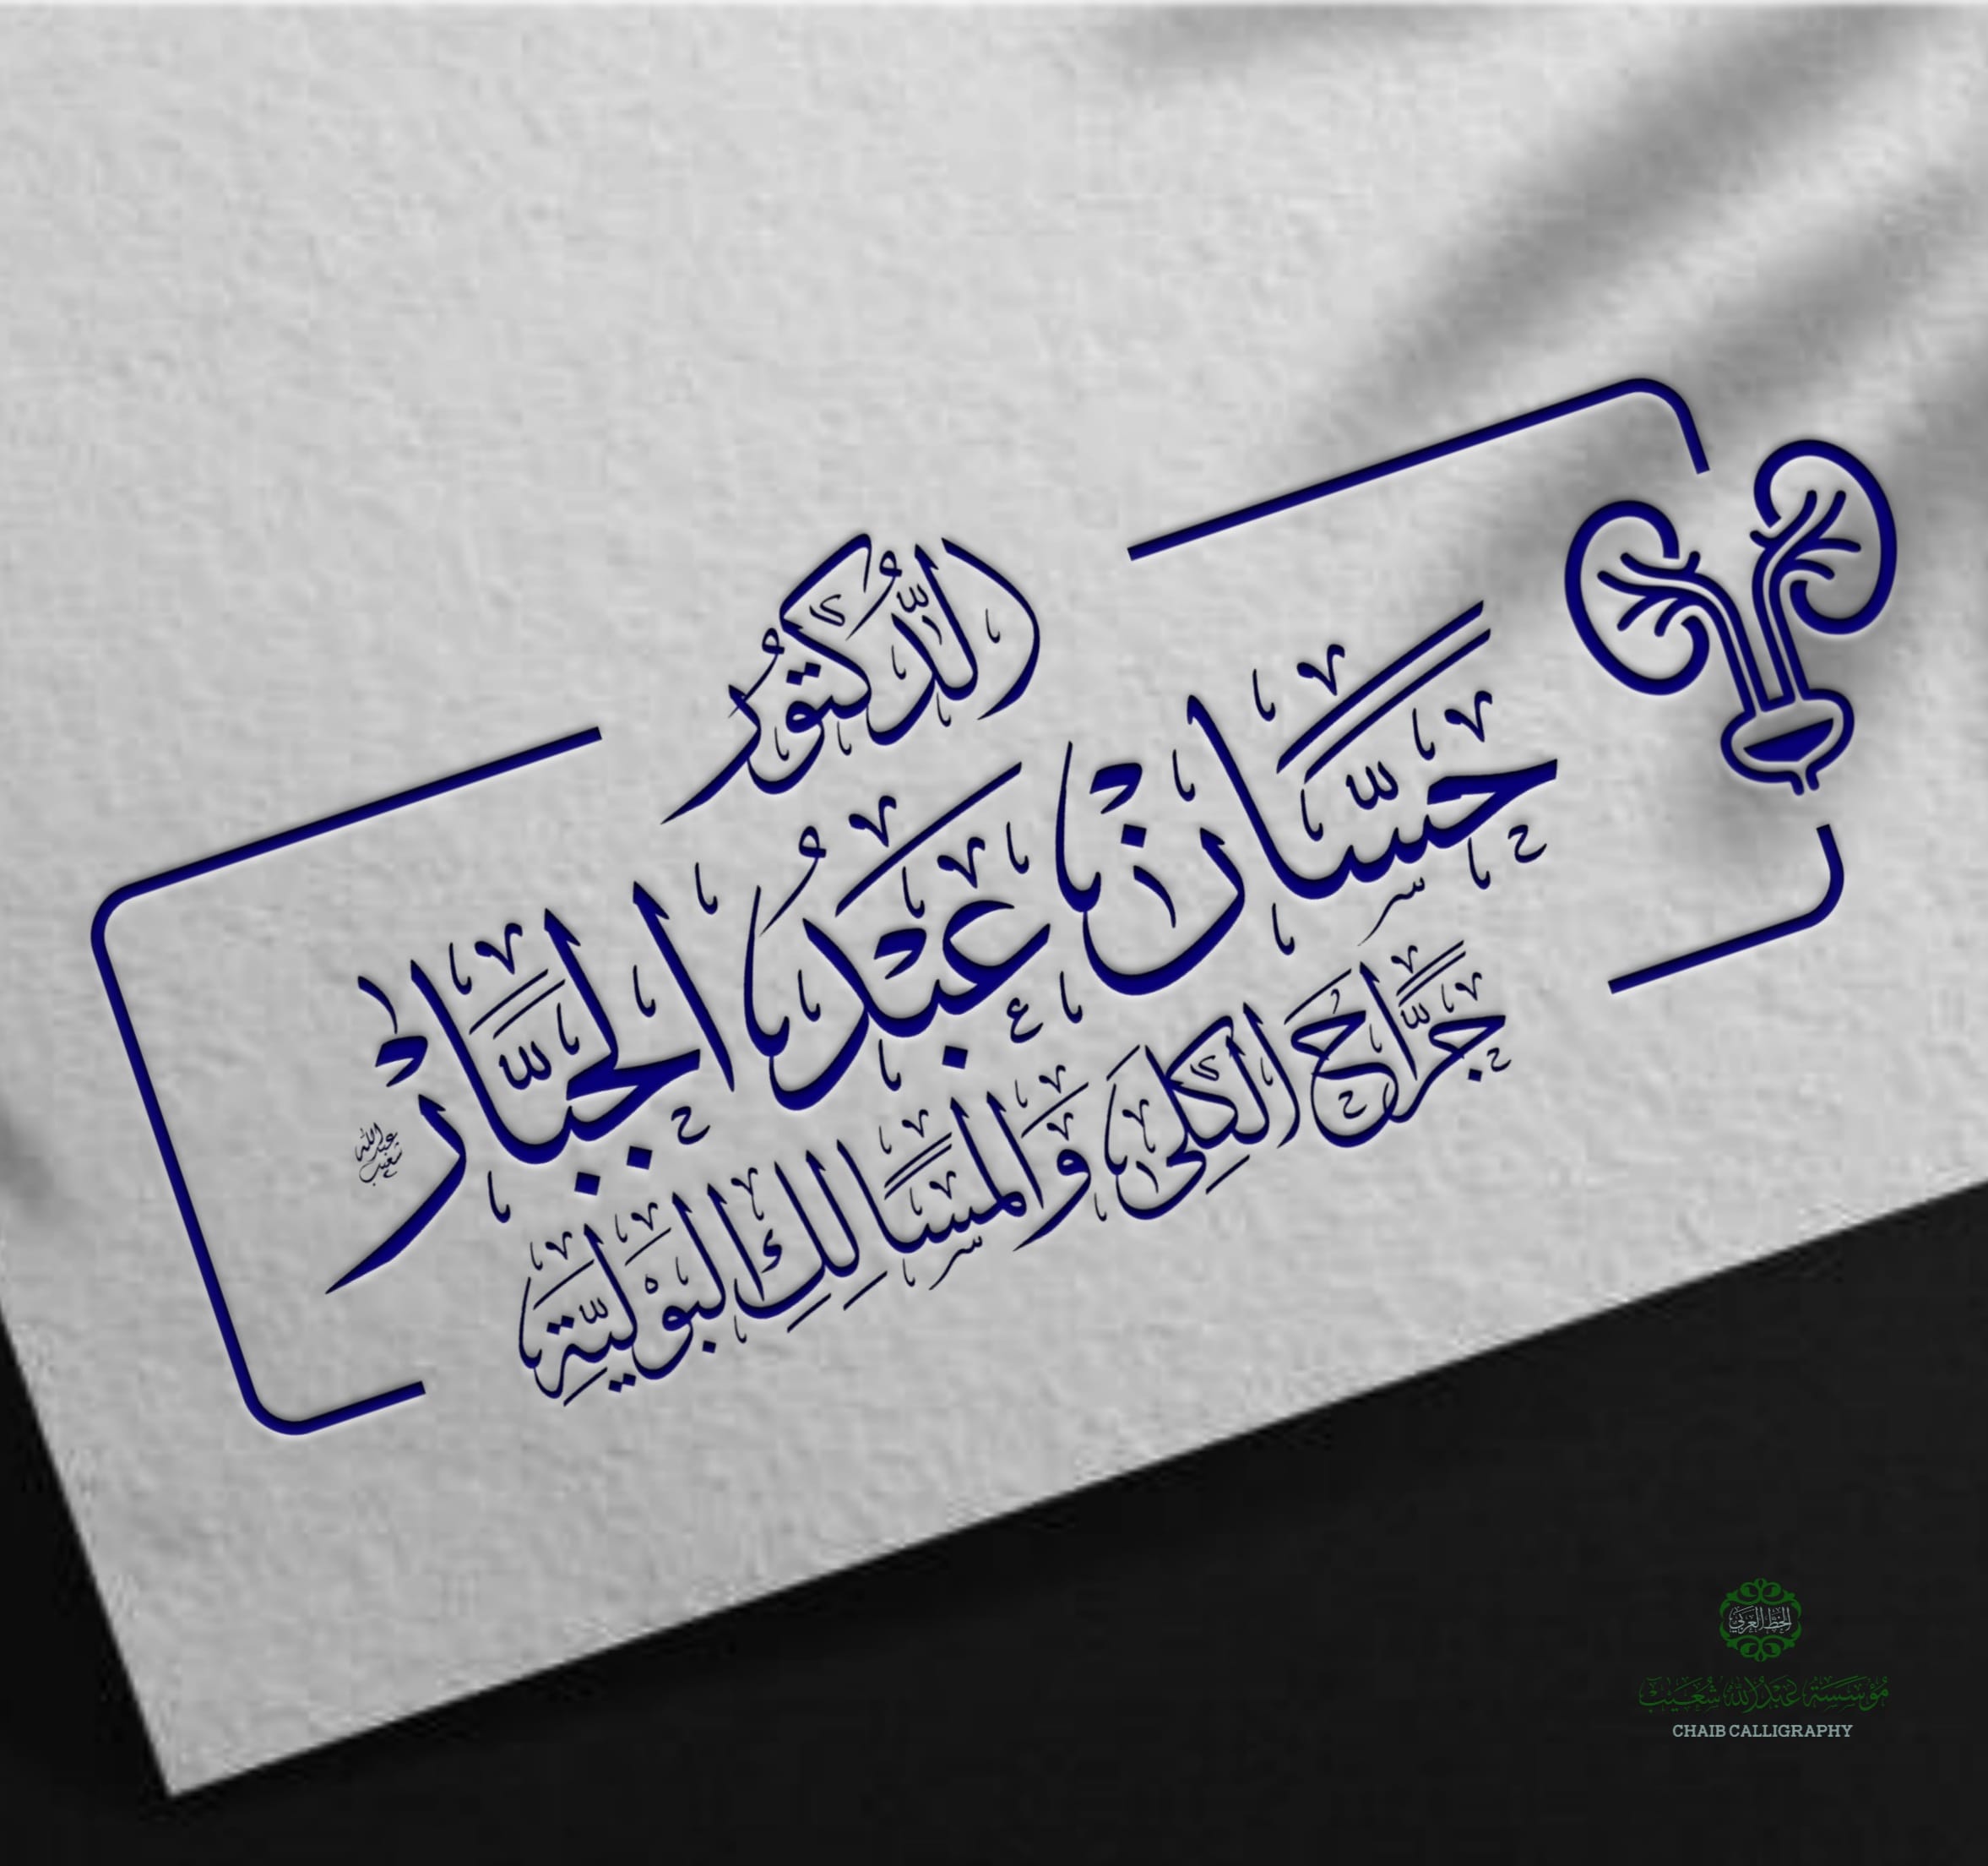 الدُّكتُورُ
حَسَّان عَبْدُ الجَبَّارْ
جَرَّاحُ الكِلَى وَالمَسَالِكِ البَوْلِيَّةِ
عبدالله شعيب
الخط العربي
مُؤَسَّسَة عَبْدُالله شُعَيْب
CHAIB CALLIGRAPHY